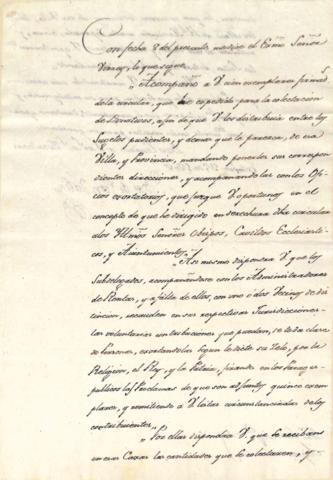 Con fecha 8 del presente me dice el Exmô Señor
Virrey, lo que sigue.
"Acompaño à V. cien exemplares
de la circular, que he expedido para la colectacion
de Donativos, afin de que V. los distribuia entre los
Sugetos pudientes, y demas que le paresca, de esa
Villa, y Provincia, mandando ponerles sus correspon
dientes direcciones, y acompañandolas con los Ofi
cios exortatorios, que juzgue V. oportunos en el
concepto de que he dirigido en derechura otra circular
álos Yllmôs Señores Obispos, Cavildos Ecleciasti-
cos, y Ayuntamientos.
"Asi mismo dispondra V. que los
Subdelegados, acompañandose con los Administradores
de Rentas, y á falta de ellos, con uno ó dos Vecinos de dis
tincion, recauden en sus respectivas Jurisdiccio-
las voluntarias contribuciones que puedan, de toda clase
de Personas, exortandolas segun les dicte su Zelo, por la
Religion, el Rey, y la Patria, fixando en los Parages
publicos las Proclamas de que son adjuntos quince exem
plares, y remitiendo á V. listas circunstanciadas delos
contribuyentes.
"Por ellas dispondrá V. que se reciban
en esas Caxas las cantidades que se colectaren, y